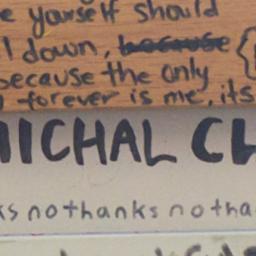 e yourself should
l down, because {
because the only
forever is me, its
MICHAL CL
ks nothanks notha